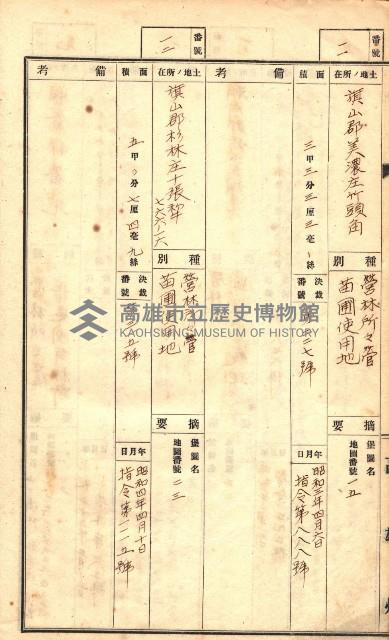 番號
一一
土地ノ所在
旗山郡美濃庄竹頭角
種別
營林所々管
苗圃使用地
摘要
堡圖名
地圖番號 一五
面積
三甲三分三厘三毫、絲
決裁番號
二七號
年月日
昭和三年四月六日
指令第八八八號
備考
番號
一二
土地ノ所在
旗山郡杉林庄十張犂
七六六ノ二六
種別
營林所々管
苗圃使用地
摘要
堡圖名
地圖番號 二三
面積
五甲〇分七厘四毫九絲
決裁番號
五號
年月日
昭和四年四月十日
指令第一一一五號
備考
高雄市立歷史博物館
KAOHSIUNG MUSEUM OF HISTORY